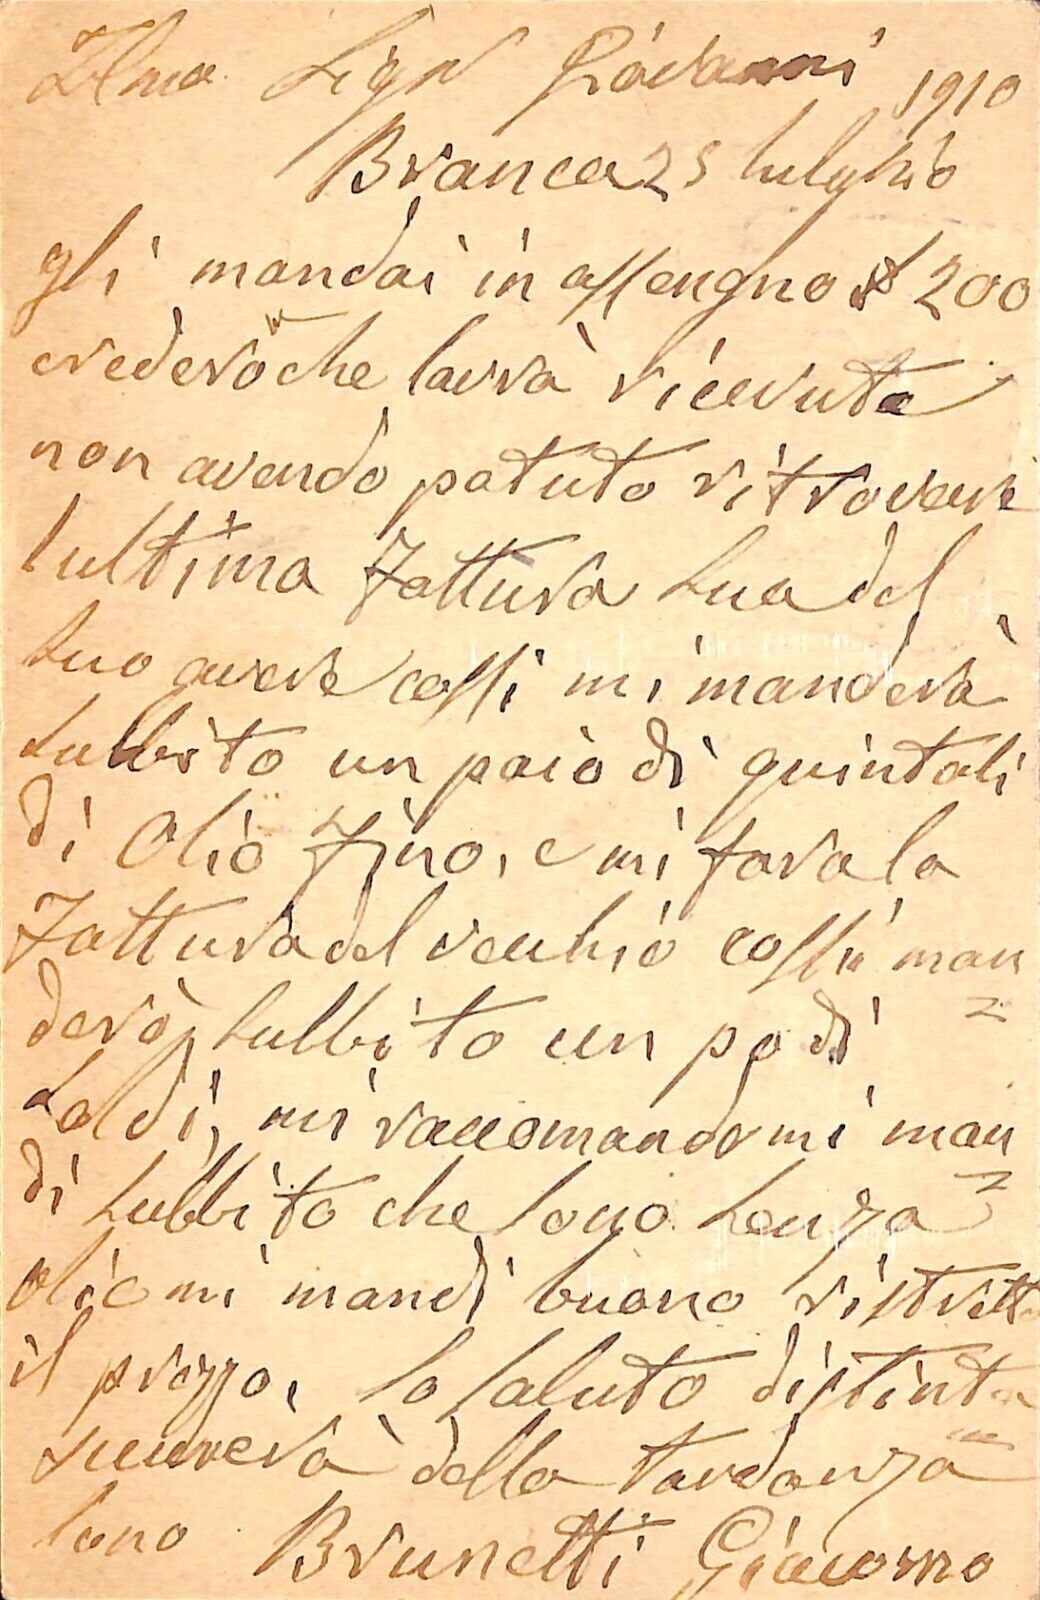 Ilmo Sigr Giovanni 1910
Branca 25 luluglio
gli mandai in assengno £ 200
crederò che lavrà ricevuta
non avendo potuto ritrovare
lultima fattura sua del
suo avere cossi mi manderà
subbito un paio di quintali
di olio fino, e mi fara la
fattura del vechio cossi man
derò subbito un po di
soldi, mi raccomando mi man
di subbito che sono senza
olio mi mandi buono ristretto
il prezzo, lo saluto distinta
scuserà della tardanza
sono Brunetti Giacomo